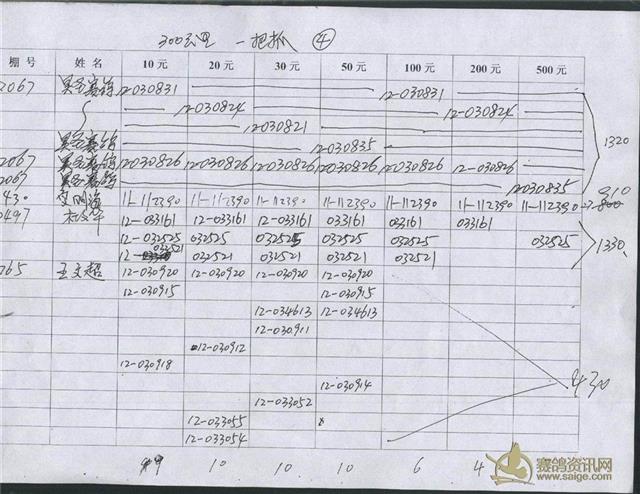 300公里 一把抓 ④
棚号 姓名 10元 20元 30元 50元 100元 200元 500元
2067 12-030831 12-030831
12-030824 12-030824
12-030821 1320
12-030835
2067 12-030826 12-030826 12-030826 12-030826 12-030826 12-030826
2067 12-030835
430 11-112390 11-112390 11-112390 11-112390 11-112390 11-112390 11-112390 910
0497 12-033161 12-033161 12-033161 033161 033161 033161
12-032525 032525 032525 032525 032525 032525 1330
12- 032521 032521 032521 032521 032521
765 王文超 12-030920 12-030920 12-030920 12-030920
12-030915 12-030915
12-034613 12-034613
12-030911
12-030912
12-030918
12-030914 430
12-033052
12-033055
12-033054
9 10 10 10 6 4
赛鸽资讯网
www.saige.com